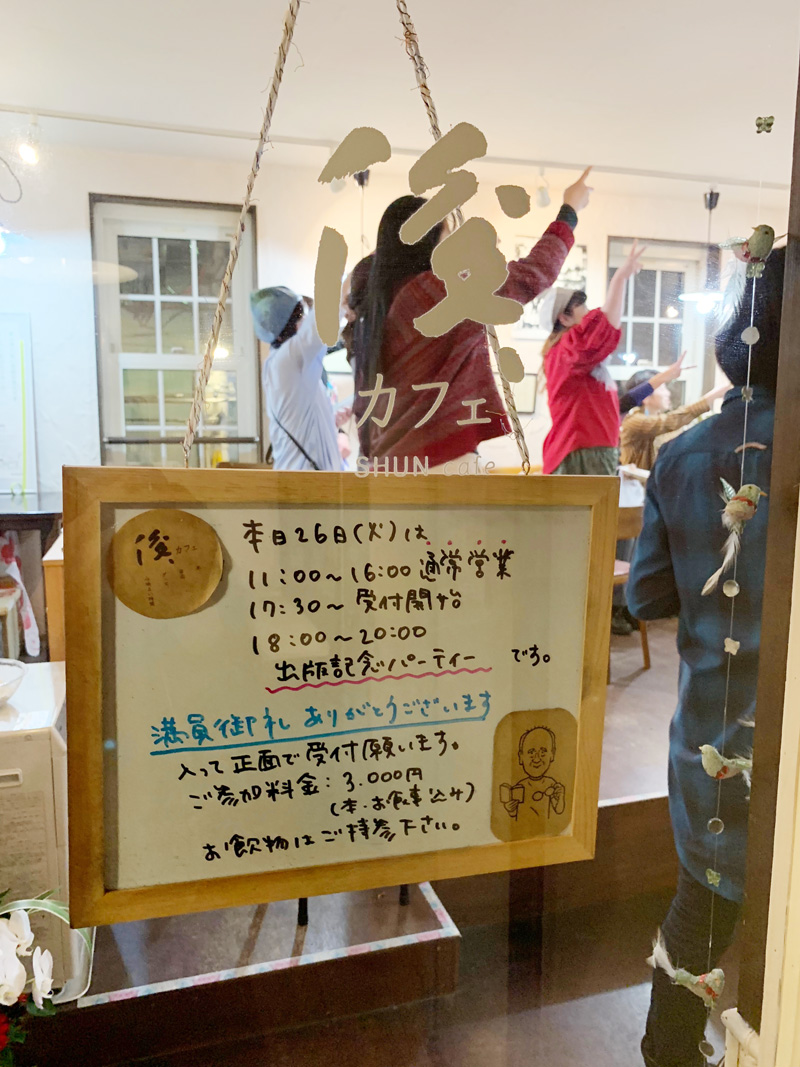 後
カフェ
SHUN cafe
後 カフェ
本日26日(火)は
11:00〜16:00 通常営業
17:30〜 受付開始
18:00〜20:00
出版記念パーティー です。
満員御礼 ありがとうございます
入って正面で受付願います。
ご参加料金:3.000円
(本・お食事込み)
お飲物はご持参下さい。